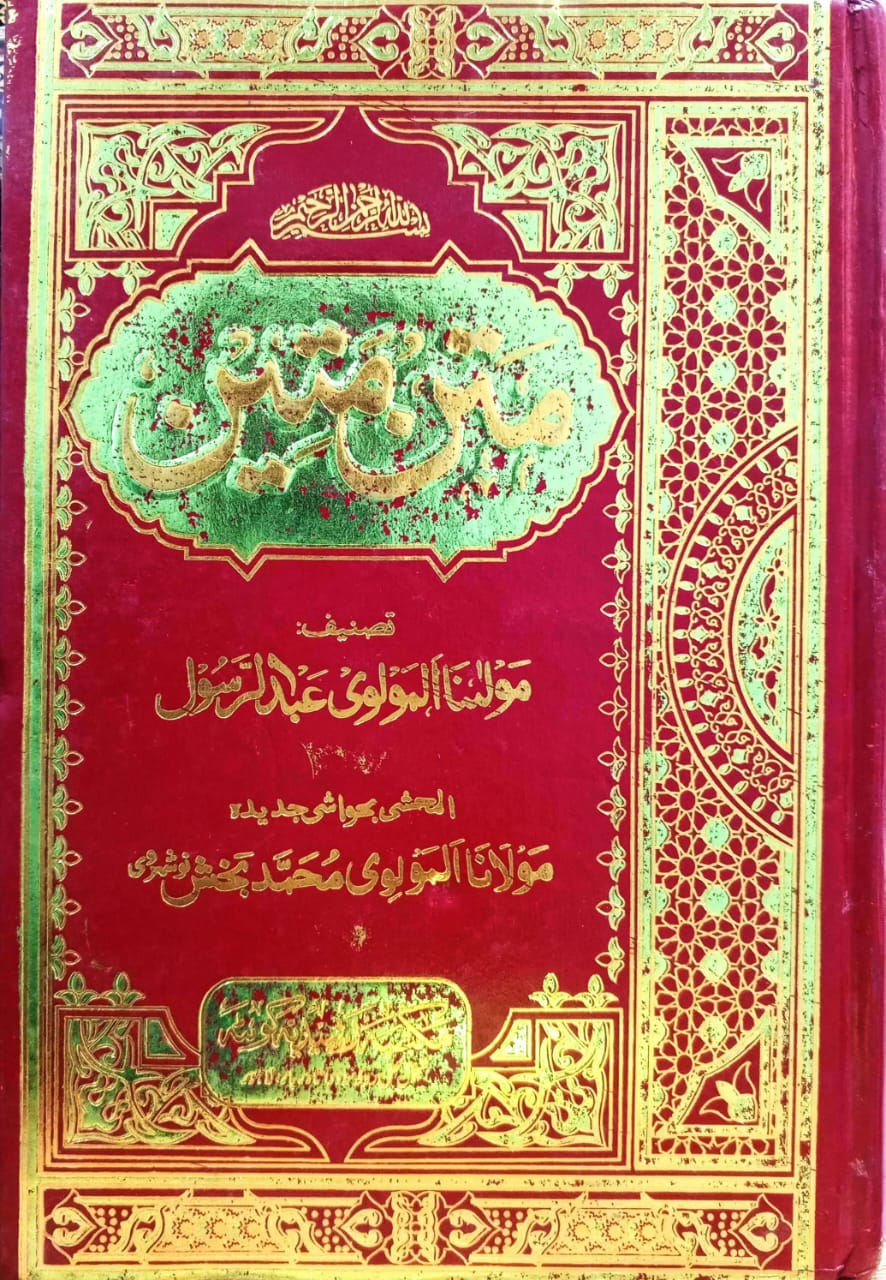 بسم الله الرحمن الرحيم
مَتَن مَتِيُن
تصنیف:
مَوْلٰسنَا اَلمَوْلوِی عَبْدالرَّسُوْل
المحشی بحواشی جدیدہ
مَوْلَانَا اَلمَوْلوِی مُحَمَّد بَخش نوشہروی
مکتبہ